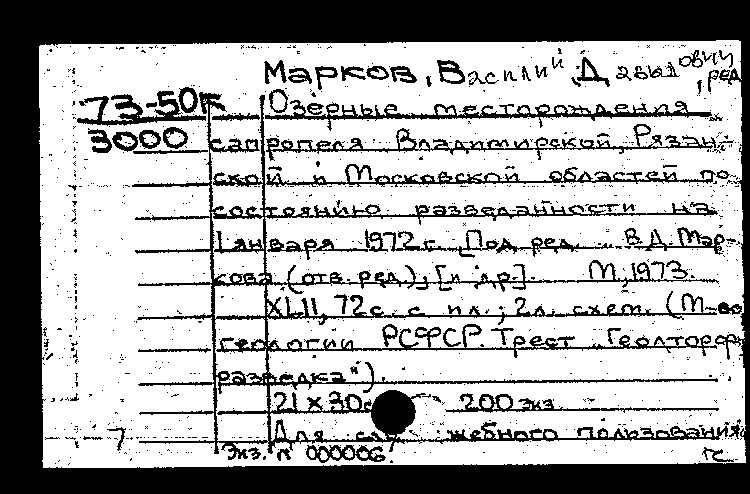 Марков, Василий Давыдович, ред
73-50к Озерные месторождения
3000 сапропеля Владимирской, Рязан-
ской и Московской областей по
состоянию разведанности на
1 января 1972 г. [Под ред. В.Д. Мар-
кова (отв. ред.), [и др.]. М., 1973.
XLII, 72 с. с ил.; 2 л. схем. (М-во
геологии РСФСР. Трест „Геолторф-
разведка").
21 x 30 200 экз.
7 Для служебного пользования
Экз. N 000006.